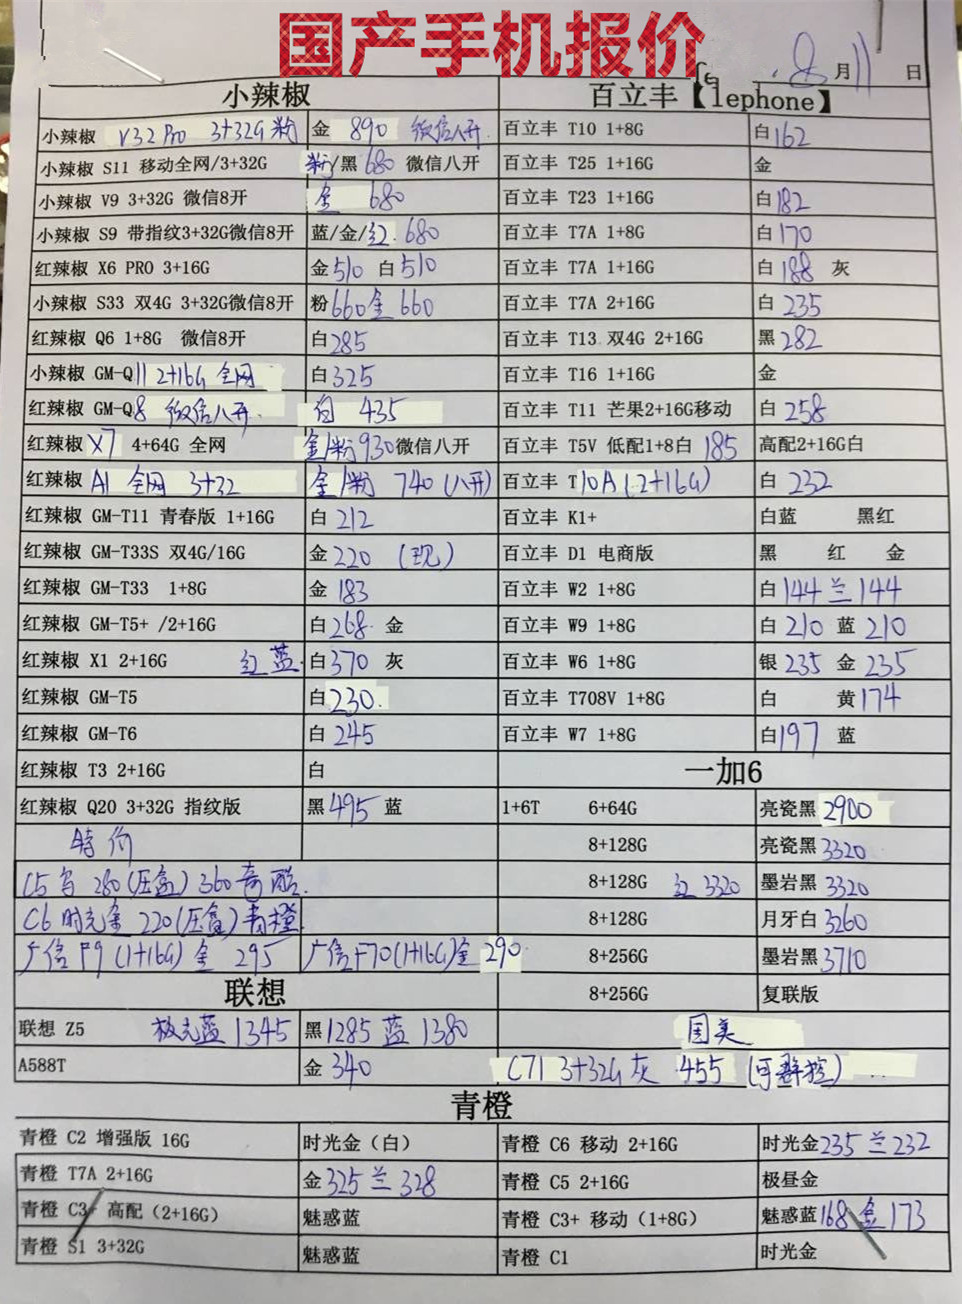 国产手机报价
8月11日
小辣椒 百立丰【lephone】
小辣椒 V32 Pro 3+32G 粉 金 890 微信八开 百立丰 T10 1+8G 白162
小辣椒 S11 移动全网/3+32G 粉/黑 680 微信八开 百立丰 T25 1+16G 金
小辣椒 V9 3+32G 微信8开 金 680 百立丰 T23 1+16G 白182
小辣椒 S9 带指纹3+32G微信8开 蓝/金/红 680 百立丰 T7A 1+8G 白170
红辣椒 X6 PRO 3+16G 金510 白510 百立丰 T7A 1+16G 白 188 灰
小辣椒 S33 双4G 3+32G微信8开 粉660金 660 百立丰 T7A 2+16G 白 235
红辣椒 Q6 1+8G 微信8开 白285 百立丰 T13 双4G 2+16G 黑 282
小辣椒 GM-Q11 2+16G 全网 白325 百立丰 T16 1+16G 金
红辣椒 GM-Q8 微信八开 白 435 百立丰 T11 芒果2+16G移动 白 258
红辣椒 X7 4+64G 全网 金/粉930微信八开 百立丰 T5V 低配1+8白 185 高配2+16G白
红辣椒 A1 全网 3+32 金/粉 740(八开) 百立丰 T10A(2+16G) 白 232
红辣椒 GM-T11 青春版 1+16G 白 212 百立丰 K1+ 白蓝 黑红
红辣椒 GM-T33S 双4G/16G 金 220 (现) 百立丰 D1 电商版 黑 红 金
红辣椒 GM-T33 1+8G 金 183 百立丰 W2 1+8G 白144 兰 144
红辣椒 GM-T5+ /2+16G 白268 金 百立丰 W9 1+8G 白 210 蓝 210
红辣椒 X1 2+16G 红 蓝 白370 灰 百立丰 W6 1+8G 银 235 金 235
红辣椒 GM-T5 白230 百立丰 T708V 1+8G 白 黄174
红辣椒 GM-T6 白 245 百立丰 W7 1+8G 白197 蓝
红辣椒 T3 2+16G 白 一加6
红辣椒 Q20 3+32G 指纹版 黑495 蓝 1+6T 6+64G 亮瓷黑 2900
特价 8+128G 亮瓷黑 3320
C5 280(压盒) 360奇酷 8+128G 红 3320 墨岩黑 3320
C6 时光金 220(压盒)青橙 8+128G 月牙白 3260
广信 F9 (1+16G) 金 295 广信F70(1+16G)金 290 8+256G 墨岩黑3710
联想 8+256G 复联版
联想 Z5 极光蓝 1345 黑1285 蓝 1380 国美
A588T 金 340 C71 3+32G 灰 455 (可群控)
青橙
青橙 C2 增强版 16G 时光金（白） 青橙 C6 移动 2+16G 时光金235 兰 232
青橙 T7A 2+16G 金325 兰 328 青橙 C5 2+16G 极昼金
青橙 C3+ 高配（2+16G） 魅惑蓝 青橙 C3+ 移动（1+8G） 魅惑蓝168 金 173
青橙 S1 3+32G 魅惑蓝 青橙 C1 时光金